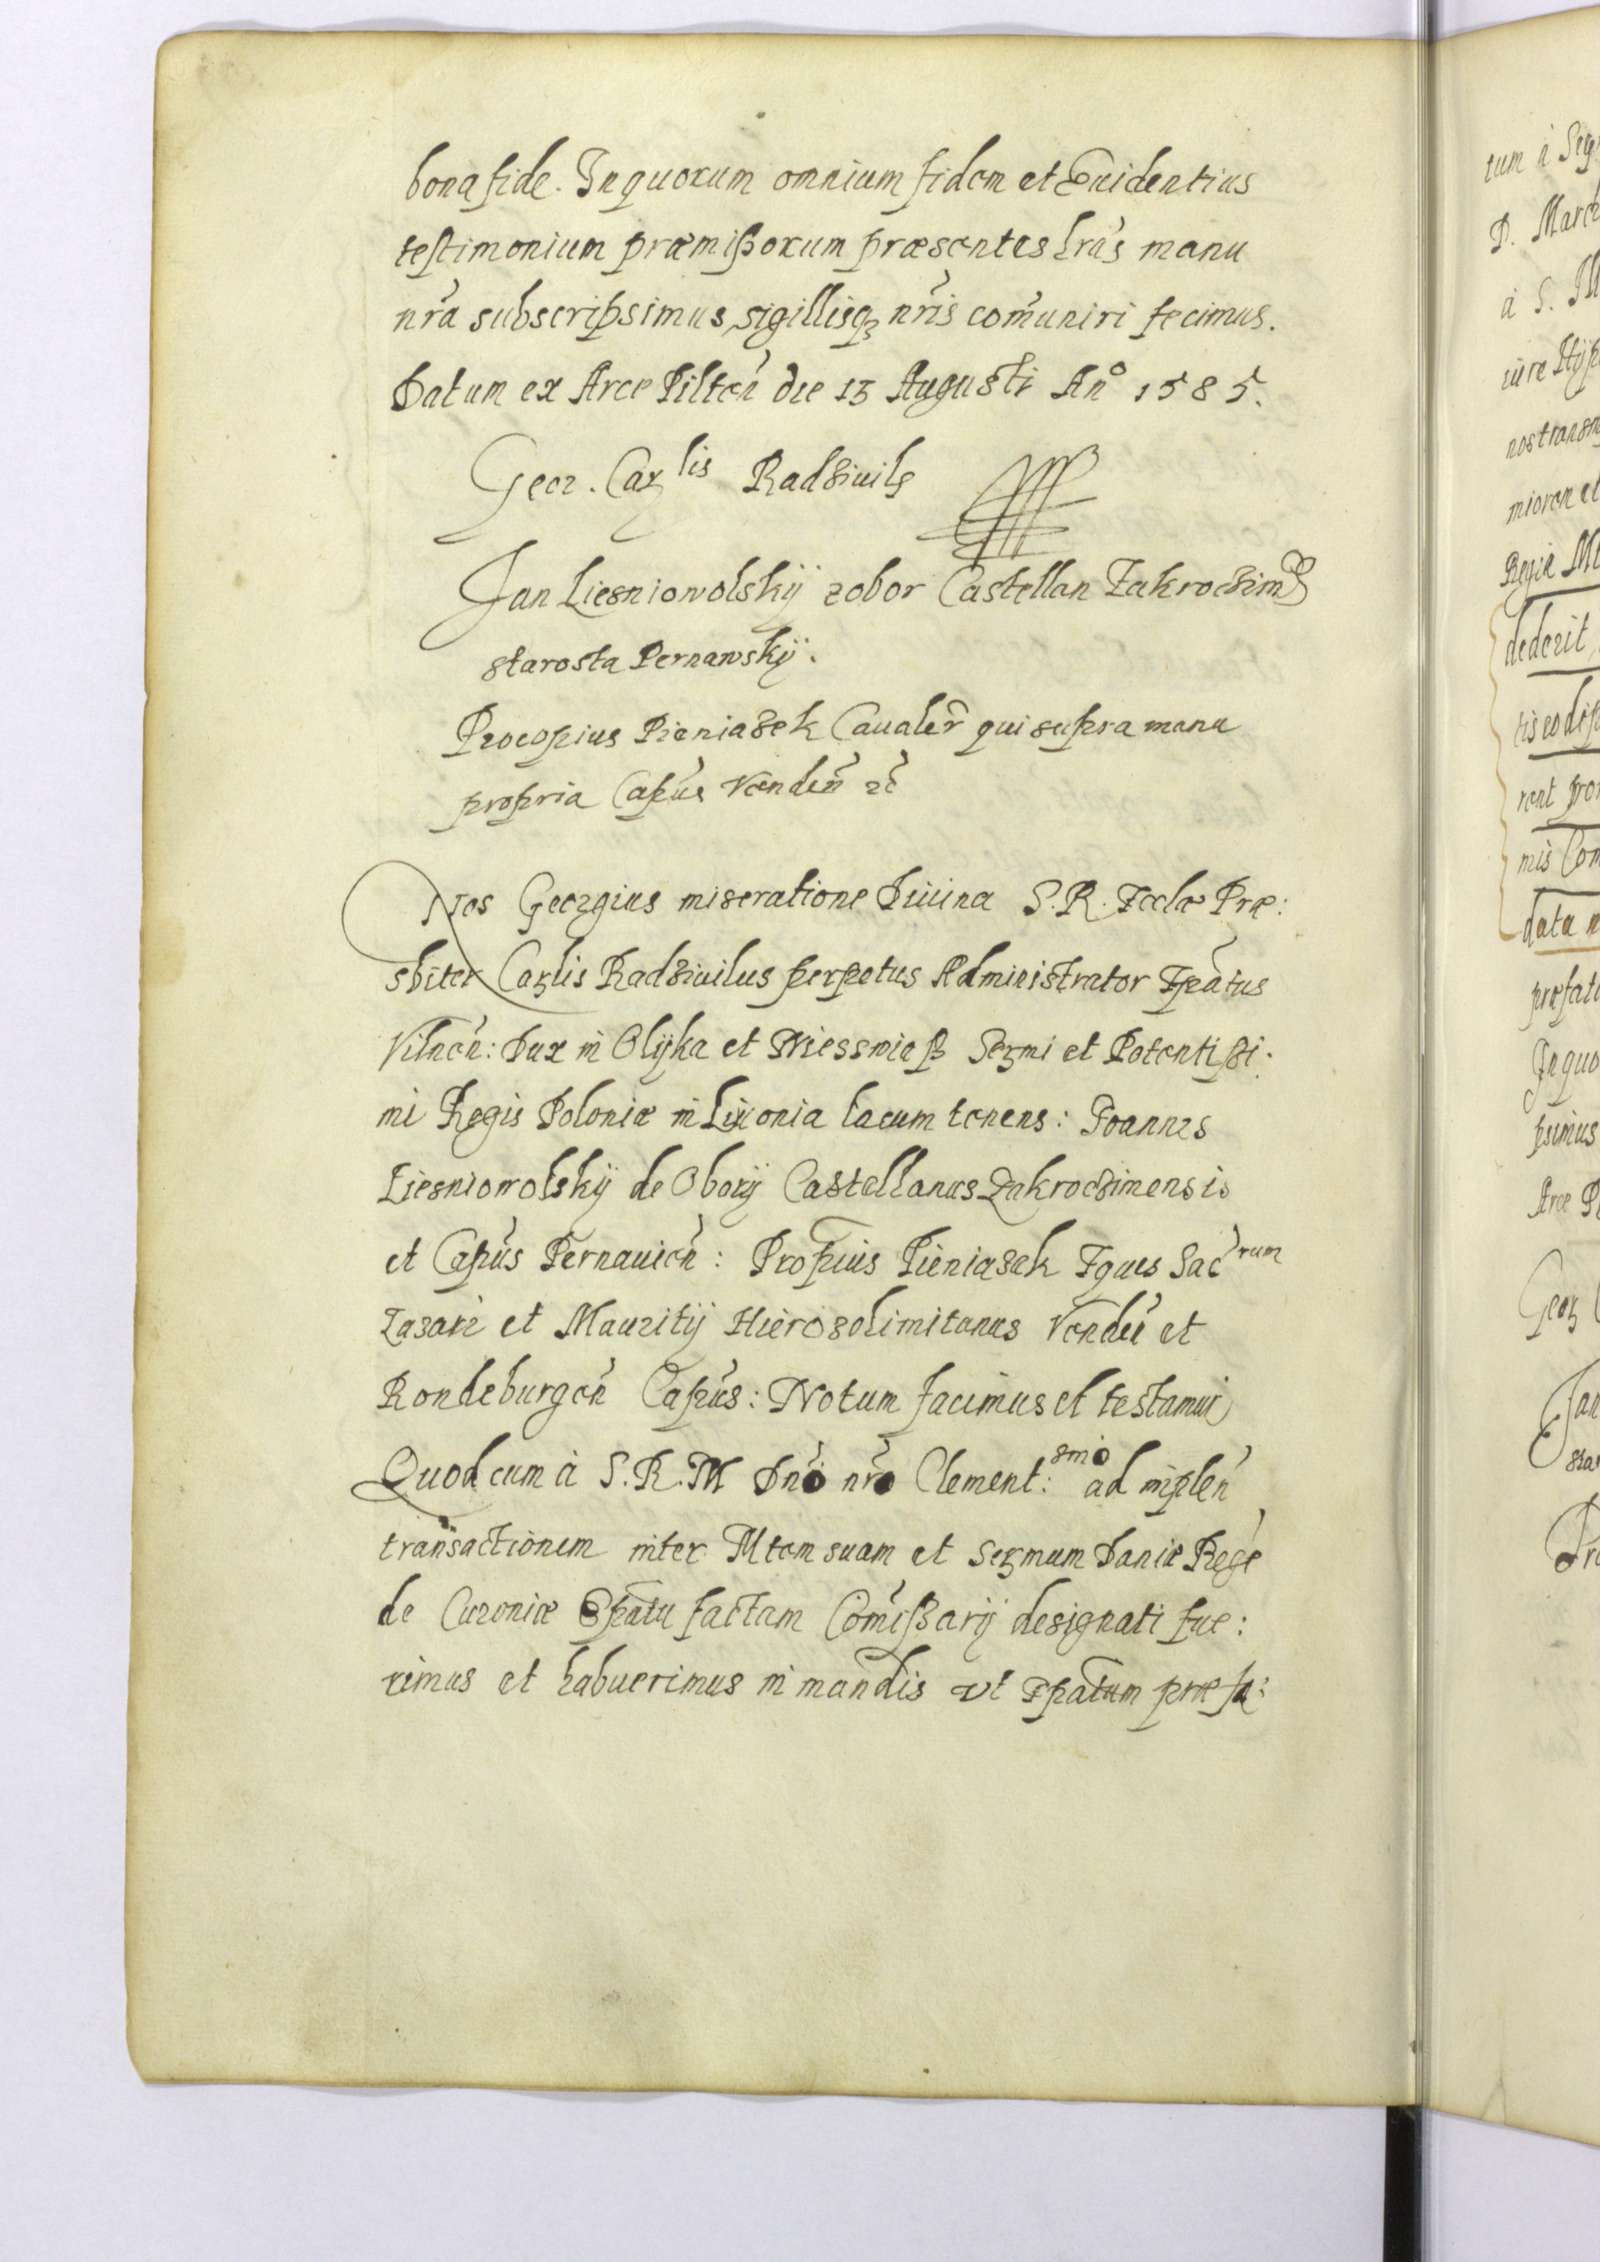 bona fide. In quorum omnium fidem et Euidentius
testimonium præmißorum præsentes lrãs manu
nrã subscripsimus, sigillisq₃ nrĩs comũniri fecimus.
Datum ex Arce Pilteñ die 15 Augusti Anº 1585.
Geor. Carlis Radziuils
Jan Liesniowolskÿ zobor Castellan Zakroczims
starosta Pernawskÿ.
Procopius Pieniasek Caualer̃ qui supra manu
propria Capũs Venden̄ ꝛc̃
Nos Georgius miseratione Diuina S. R. Ecclæ Præ:
sbiter Carlis Radziuilus perpetus Administrator Epãtus
Vilneñ: Dux in Olÿka et Niesswieß Sermi et Potentißi.
mi Regis Poloniæ in Liuonia Locum tenens: Joannes
Liesniowolskÿ de Oborÿ Castellanus Zakroczimensis
et Capũs Pernauieñ: Propius Pieniasek Eques Sacrum
Lasari et Mauritij Hierosolimitanus Vendeñ et
Rondeburgeñ Capũs: Notum facimus et testamur
Quod cum à S. R. M Dnõ nrõ Clement:smo ad impleñ
transactionem inter Mtem suam et Sermum Daniæ Regẽ
de Curoniæ Epãtu factam Comĩßarij designati fue:
rimus et habuerimus in mandis vt Epatum præfa:
tum à
P. March
à S.
iure Hÿp
nostransm
miorem et
Regiæ M
dederit
tis eodem
rent pro
mis Com
data
præfat
In quo
psimus
Arce P
Geor
Jan
Sta
Pro